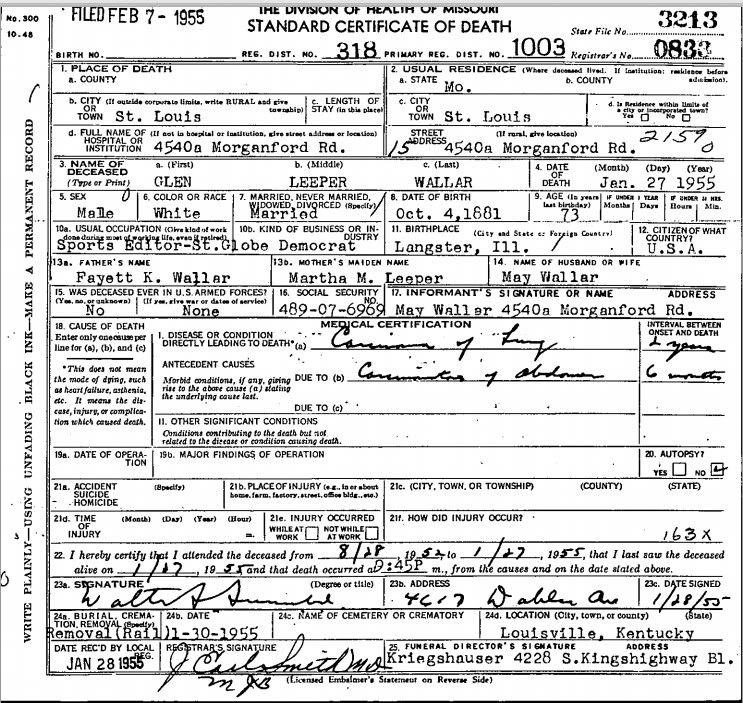 No. 300
10-48
FILED FEB 7 - 1955
THE DIVISION OF HEALTH OF MISSOURI
STANDARD CERTIFICATE OF DEATH
State File No. 3213
BIRTH NO. REG. DIST. NO. 318 PRIMARY REG. DIST. NO. 1003 Registrar's No. 0833
WRITE PLAINLY—USING UNFADING BLACK INK—MAKE A PERMANENT RECORD
1. PLACE OF DEATH
a. COUNTY
2. USUAL RESIDENCE (Where deceased lived. If institution: residence before admission).
a. STATE Mo. b. COUNTY
b. CITY (If outside corporate limits, write RURAL and give township)
OR TOWN St. Louis
c. LENGTH OF STAY (in this place)
c. CITY OR TOWN St. Louis
d. Is Residence within limits of a city or incorporated town?
Yes No
d. FULL NAME OF HOSPITAL OR INSTITUTION (If not in hospital or institution, give street address or location)
4540a Morganford Rd.
STREET ADDRESS (If rural, give location)
15 4540a Morganford Rd.
2159
0
3. NAME OF DECEASED (Type or Print)
a. (First) GLEN
b. (Middle) LEEPER
c. (Last) WALLAR
4. DATE OF DEATH (Month) (Day) (Year)
Jan. 27 1955
5. SEX 0
Male
6. COLOR OR RACE
White
7. MARRIED, NEVER MARRIED, WIDOWED, DIVORCED (Specify)
Married
8. DATE OF BIRTH
Oct. 4,1881
9. AGE (In years last birthday)
73
IF UNDER 1 YEAR Months Days
IF UNDER 24 HRS. Hours Min.
10a. USUAL OCCUPATION (Give kind of work done during most of working life, even if retired)
10b. KIND OF BUSINESS OR INDUSTRY
Sports Editor-St.Globe Democrat
11. BIRTHPLACE (City and State or Foreign Country)
Langster, Ill.
12. CITIZEN OF WHAT COUNTRY?
U.S.A.
13a. FATHER'S NAME
Fayett K. Wallar
13b. MOTHER'S MAIDEN NAME
Martha M. Leeper
14. NAME OF HUSBAND OR WIFE
May Wallar
15. WAS DECEASED EVER IN U.S. ARMED FORCES?
(Yes, no, or unknown) (If yes, give war or dates of service)
No None
16. SOCIAL SECURITY NO.
489-07-6969
17. INFORMANT'S SIGNATURE OR NAME ADDRESS
May Wallar 4540a Morganford Rd.
18. CAUSE OF DEATH
Enter only one cause per line for (a), (b), and (c)
*This does not mean the mode of dying, such as heart failure, asthenia, etc. It means the disease, injury, or complication which caused death.
MEDICAL CERTIFICATION
INTERVAL BETWEEN ONSET AND DEATH
I. DISEASE OR CONDITION DIRECTLY LEADING TO DEATH*(a) Carcinoma of Lung 2 years
ANTECEDENT CAUSES
Morbid conditions, if any, giving rise to the above cause (a) stating the underlying cause last.
DUE TO (b) Carcinomatosis of Abdomen 6 months
DUE TO (c)
II. OTHER SIGNIFICANT CONDITIONS
Conditions contributing to the death but not related to the disease or condition causing death.
19a. DATE OF OPERATION
19b. MAJOR FINDINGS OF OPERATION
20. AUTOPSY?
YES NO
21a. ACCIDENT SUICIDE HOMICIDE (Specify)
21b. PLACE OF INJURY (e.g., in or about home, farm, factory, street, office bldg., etc.)
21c. (CITY, TOWN, OR TOWNSHIP) (COUNTY) (STATE)
21d. TIME OF INJURY (Month) (Day) (Year) (Hour) m.
21e. INJURY OCCURRED
WHILE AT WORK NOT WHILE AT WORK
21f. HOW DID INJURY OCCUR?
163X
22. I hereby certify that I attended the deceased from 8/28, 1952 to 1/27, 1955, that I last saw the deceased
alive on 1/27, 1955 and that death occurred at :45P m., from the causes and on the date stated above.
23a. SIGNATURE (Degree or title)
Walter
23b. ADDRESS
4617 Ave
23c. DATE SIGNED
1/28/55
24a. BURIAL, CREMATION, REMOVAL (Specify)
Removal(Rail)
24b. DATE
1-30-1955
24c. NAME OF CEMETERY OR CREMATORY
24d. LOCATION (City, town, or county) (State)
Louisville, Kentucky
DATE REC'D BY LOCAL REG.
JAN 28 1955
REGISTRAR'S SIGNATURE
J Earl Smith MD
25. FUNERAL DIRECTOR'S SIGNATURE ADDRESS
Kriegshauser 4228 S.Kingshighway Bl.
(Licensed Embalmer's Statement on Reverse Side)